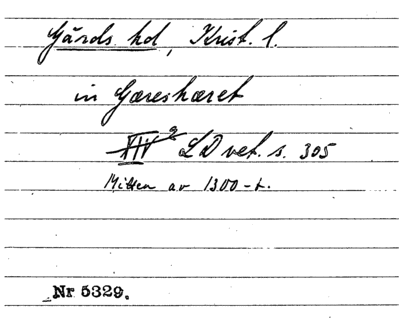 Gärds hd, Krist. l.
in Gæreshæret
XIV 2 LD vet. s. 305
Mitten av 1300-t.
Nr 5329.